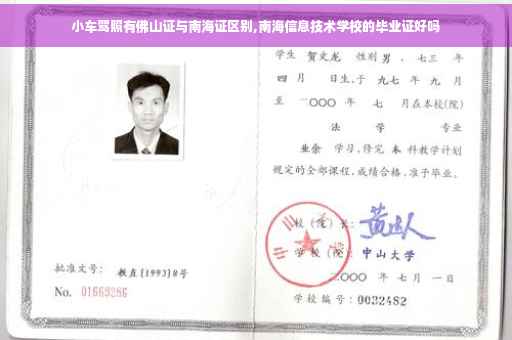 小车驾照有佛山证与南海证区别,南海信息技术学校的毕业证好吗
学生 贺文龙 性别 男 、七三 年
四 月 日生,于 九七 年 九 月
至 二〇〇〇 年 七 月在本校(院)
法 学 专业
业余 学习,修完 本 科教学计划
规定的全部课程,成绩合格,准予毕业。
校(院)长:
学校(院): 中山大学
二〇〇〇 年 七 月 一 日
学校编号: 0032482
批准文号: 教直[1993]8号
No. 01663286